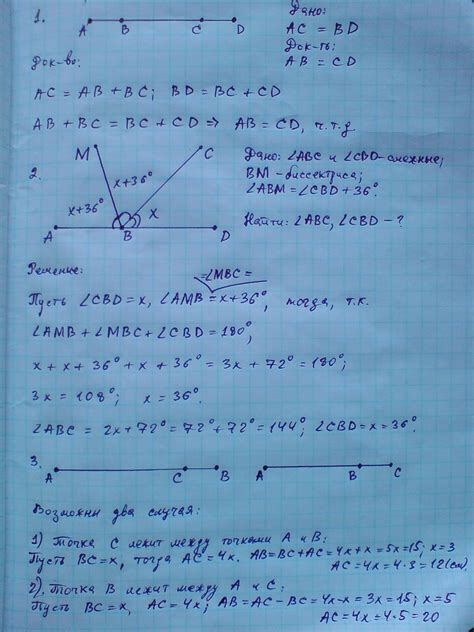 1. A B C D
Дано:
AC = BD
Док-ть:
AB = CD
Док-во:
AC = AB + BC; BD = BC + CD
AB + BC = BC + CD ⇒ AB = CD, ч.т.д.
2.
M C
x+36° x+36° x
A B D
Дано: ∠ABC и ∠CBD-смежные;
BM-биссектриса;
∠ABM = ∠CBD+36°.
Найти: ∠ABC, ∠CBD - ?
Решение:
=∠MBC=
Пусть ∠CBD = x, ∠AMB = x+36°, тогда, т.к.
∠AMB + ∠MBC + ∠CBD = 180°,
x + x + 36° + x + 36° = 3x + 72° = 180°;
3x = 108°; x = 36°.
∠ABC = 2x + 72° = 72° + 72° = 144°; ∠CBD = x = 36°.
3. A C B A B C
Возможны два случая:
1) Точка C лежит между точками A и B:
Пусть BC = x, тогда AC = 4x. AB = BC + AC = 4x + x = 5x = 15; x = 3
AC = 4x = 4 · 3 = 12 (см).
2) Точка B лежит между A и C:
Пусть BC = x, AC = 4x; AB = AC - BC = 4x - x = 3x = 15; x = 5
AC = 4x = 4 · 5 = 20